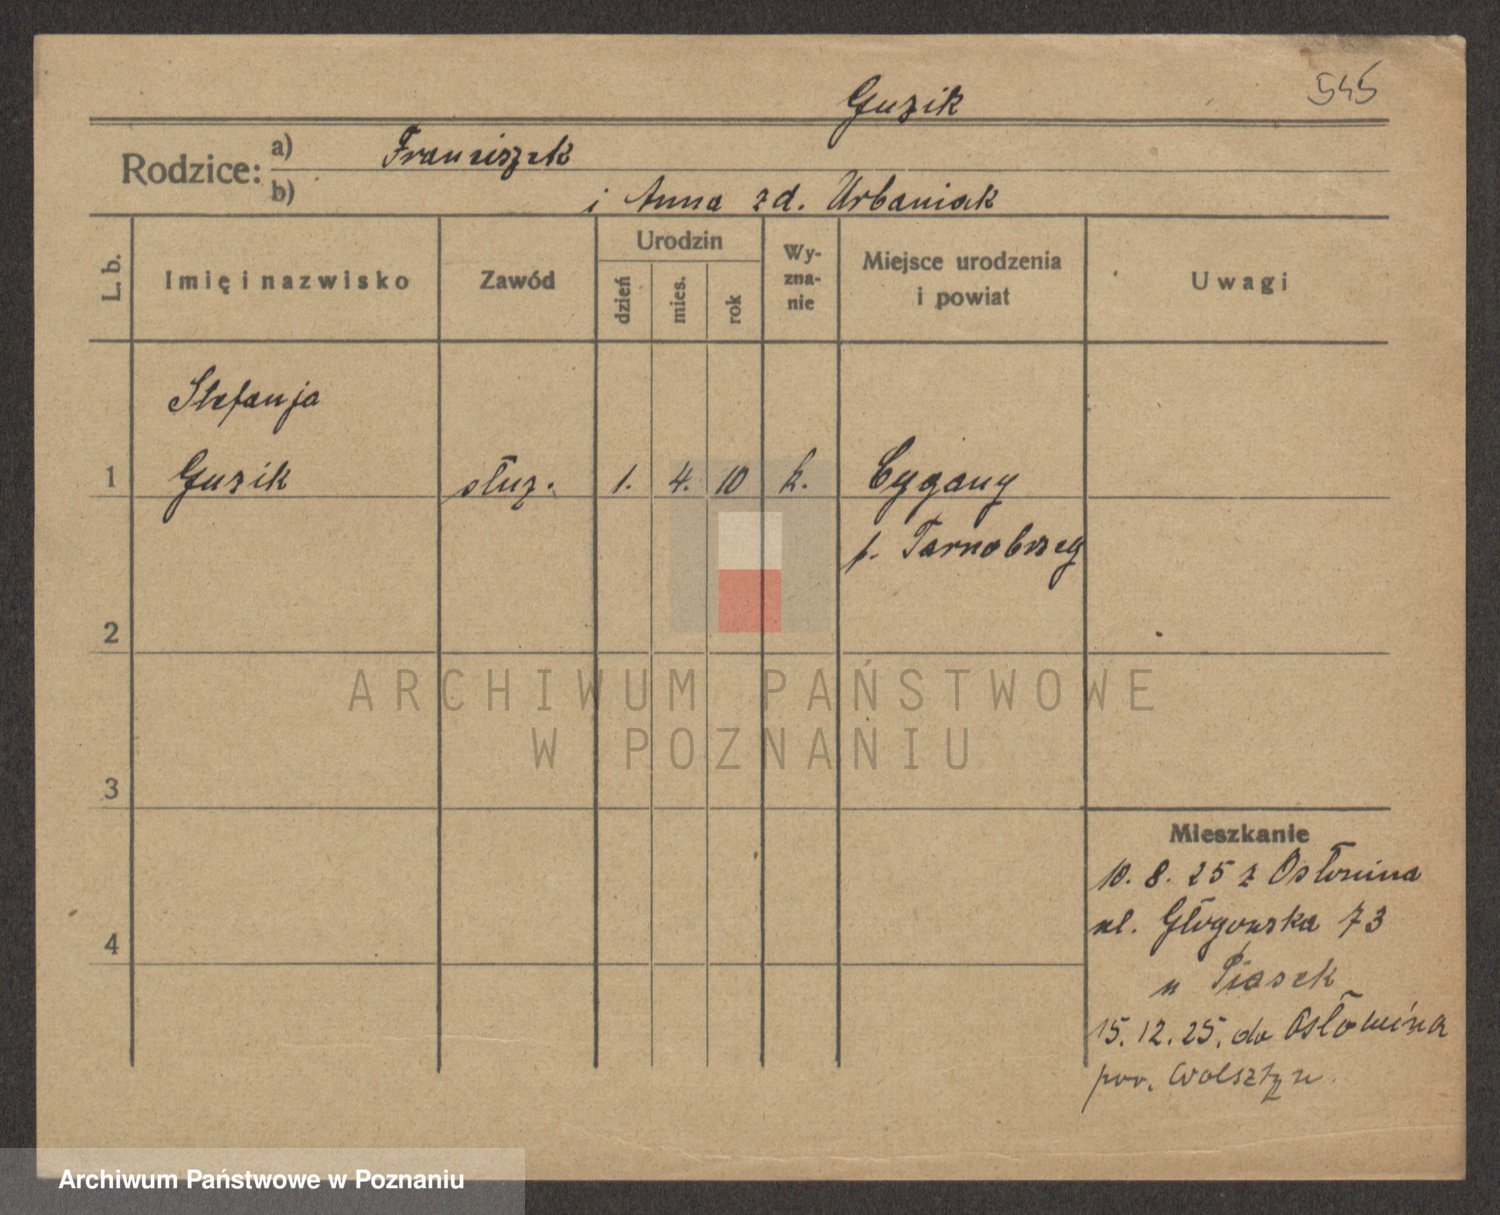 545
Guzik
Rodzice: a) Franciszek
b) i Anna zd. Urbaniak
L. b. Imię i nazwisko Zawód Urodzin dzień mies. rok Wy-zna-nie Miejsce urodzenia i powiat Uwagi
Stefanja
1 Guzik służ. 1. 4. 10 k. Cygany
p. Tarnobrzeg
2
ARCHIWUM PAŃSTWOWE
W POZNANIU
3
Mieszkanie
10. 8. 25 z Osłonina
ul. Głogowska 73
4
u Piasek
15. 12. 25. do Osłonina
pow. Wolsztyn
Archiwum Państwowe w Poznaniu